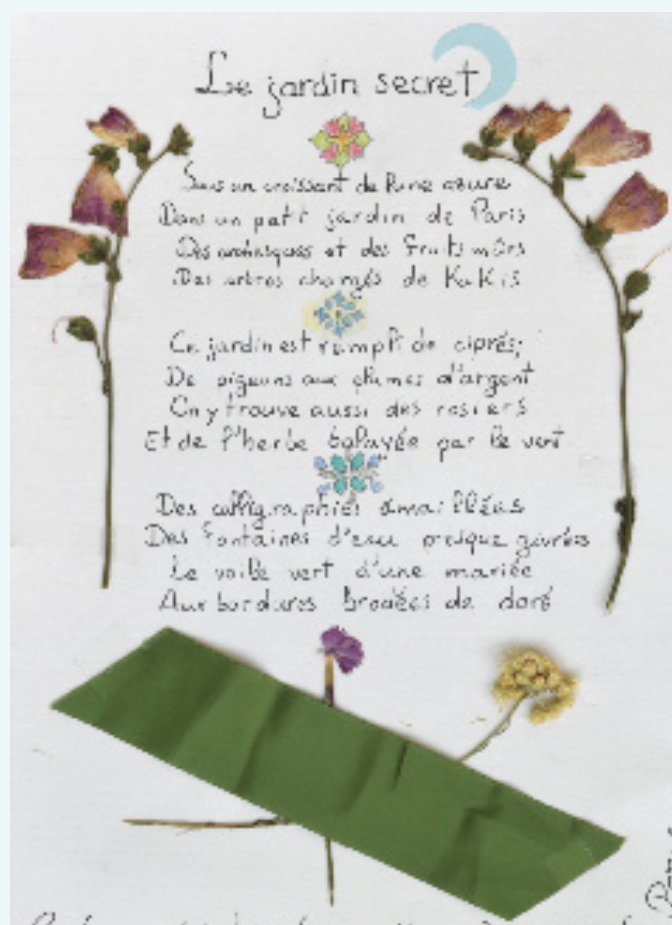 Le jardin secret
Sous un croissant de lune azure
Dans un petit jardin de Paris
Des arabesques et des fruits mûrs
Des arbres chargés de Kakis
Ce jardin est rempli de ciprés;
De pigeons aux plumes d'argent
On y trouve aussi des rosiers
Et de l'herbe balayée par le vent
Des calligraphies émaillées
Des fontaines d'eau presque givrées
Le voile vert d'une mariée
Aux bordures brodées de doré